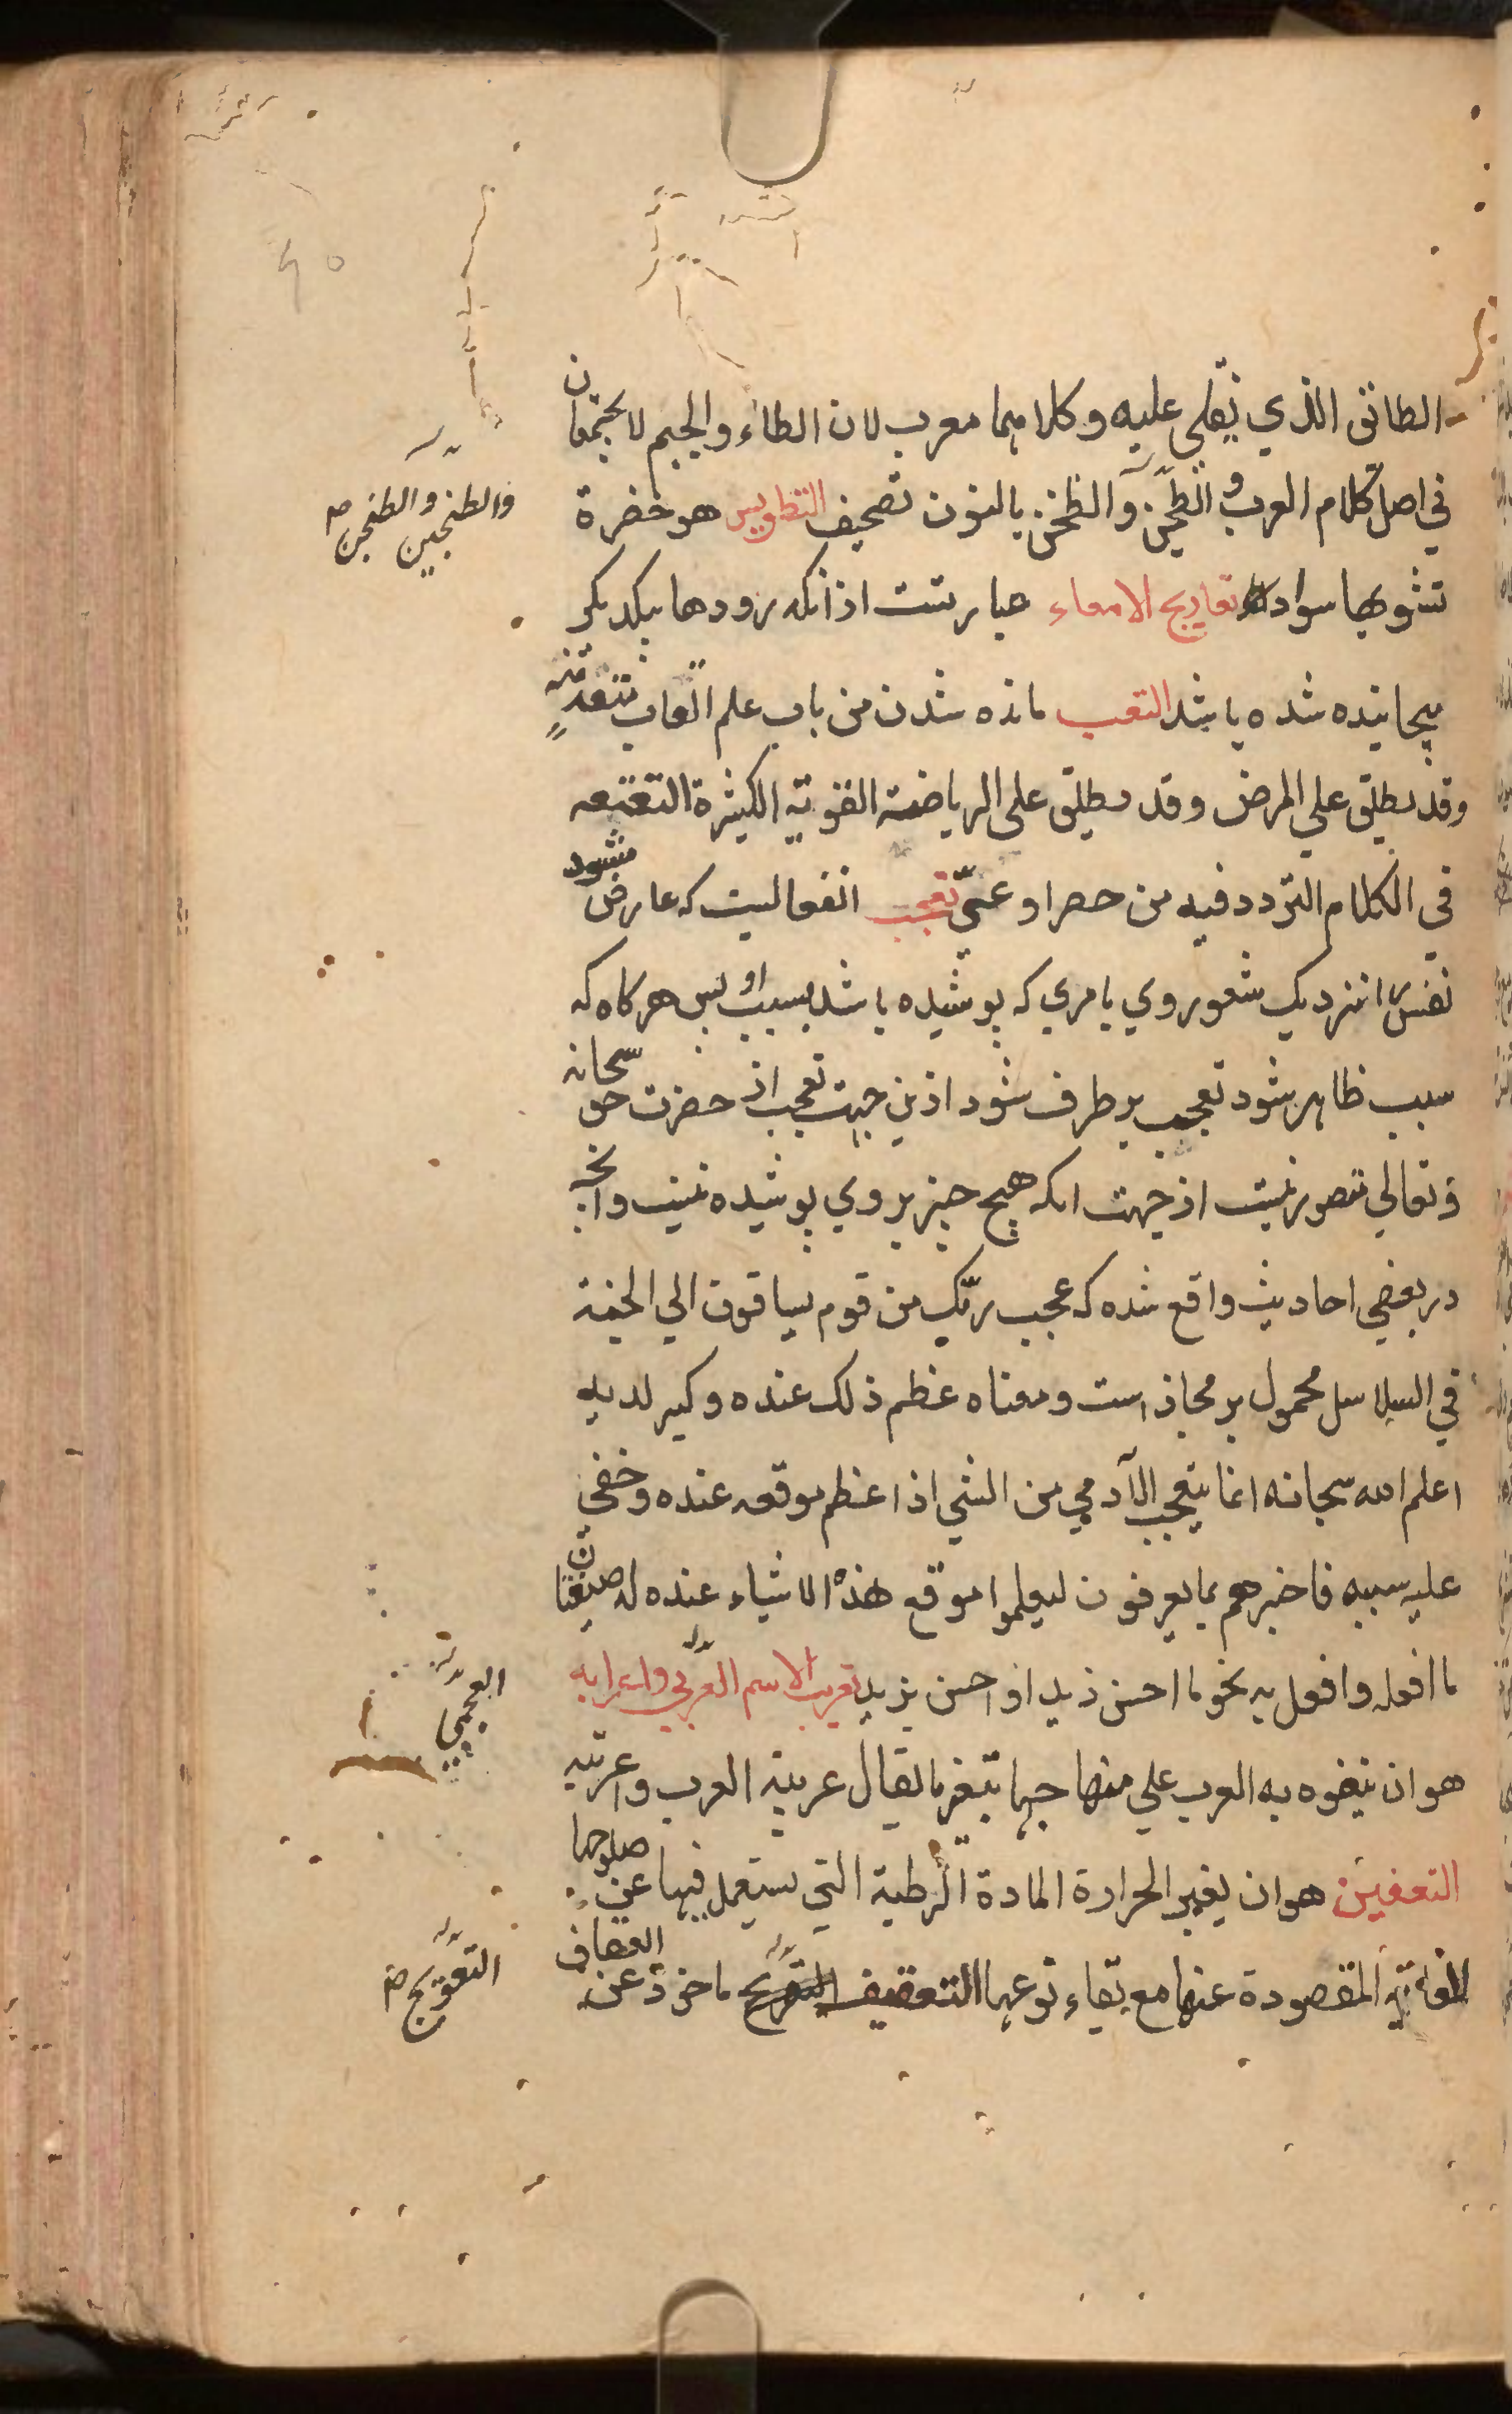 الطاتق الذي يقلى عليه وكلاهما معرب لان الطاء والجيم لا يجتمعان
في اصل كلام العرب والطيجن والطجن بالنون تصحيف التطويس هو خضرة
والطنجين والطنجن صح
تشوبها سواد تعاريج الامعاء عبارتست از انكه رودها بيكديكر
پيچانيده شده باشد التعب مانده شدن من باب علم اتعاب متعد منه
وقد يطلق على المرض وقد يطلق على الرياضة القوية الكثيرة التعتعه
في الكلام التردد فيه من حصر او عىّ تعجب انفعاليست كه عارض ميشود
نفس را نزديك شعور وي بامري كه پوشيده باشد بسبب او پس هركاه كه
سبب ظاهر شود تعجب برطرف شود ازين جهت تعجب از حضرت حق سبحانه
وتعالي متصور نيست از جهت انكه هيچ چيز بر وي پوشيده نيست وانچه
در بعضي احاديث واقع شده كه عجب ربّك من قوم يساقون الي الجنة
في السلاسل محمول بر مجاز است ومعناه عظم ذلك عنده وكبر لديه
اعلم الله سبحانه انما يتعجب الآدمي من الشي اذا عظم موقعه عنده وخفي
عليه سببه فاخبرهم بما يعرفون ليعلموا موقع هذه الاشياء عنده له صيغتان
ما افعله وافعل به نحو ما احسن زيد او احسن بزيد تعريب الاسم العربي واعرابه
العجمي
هو ان يتفوه به العرب علي منهاجها يقال عربته العرب واعربته
التعفين هو ان يغير الحرارة المادة الرطبة التي يستعمل فيها عن صلوحها
للغاية المقصودة عنها مع بقاء نوعها التعقيف ماخوذ عن العقاف
التعويج صح